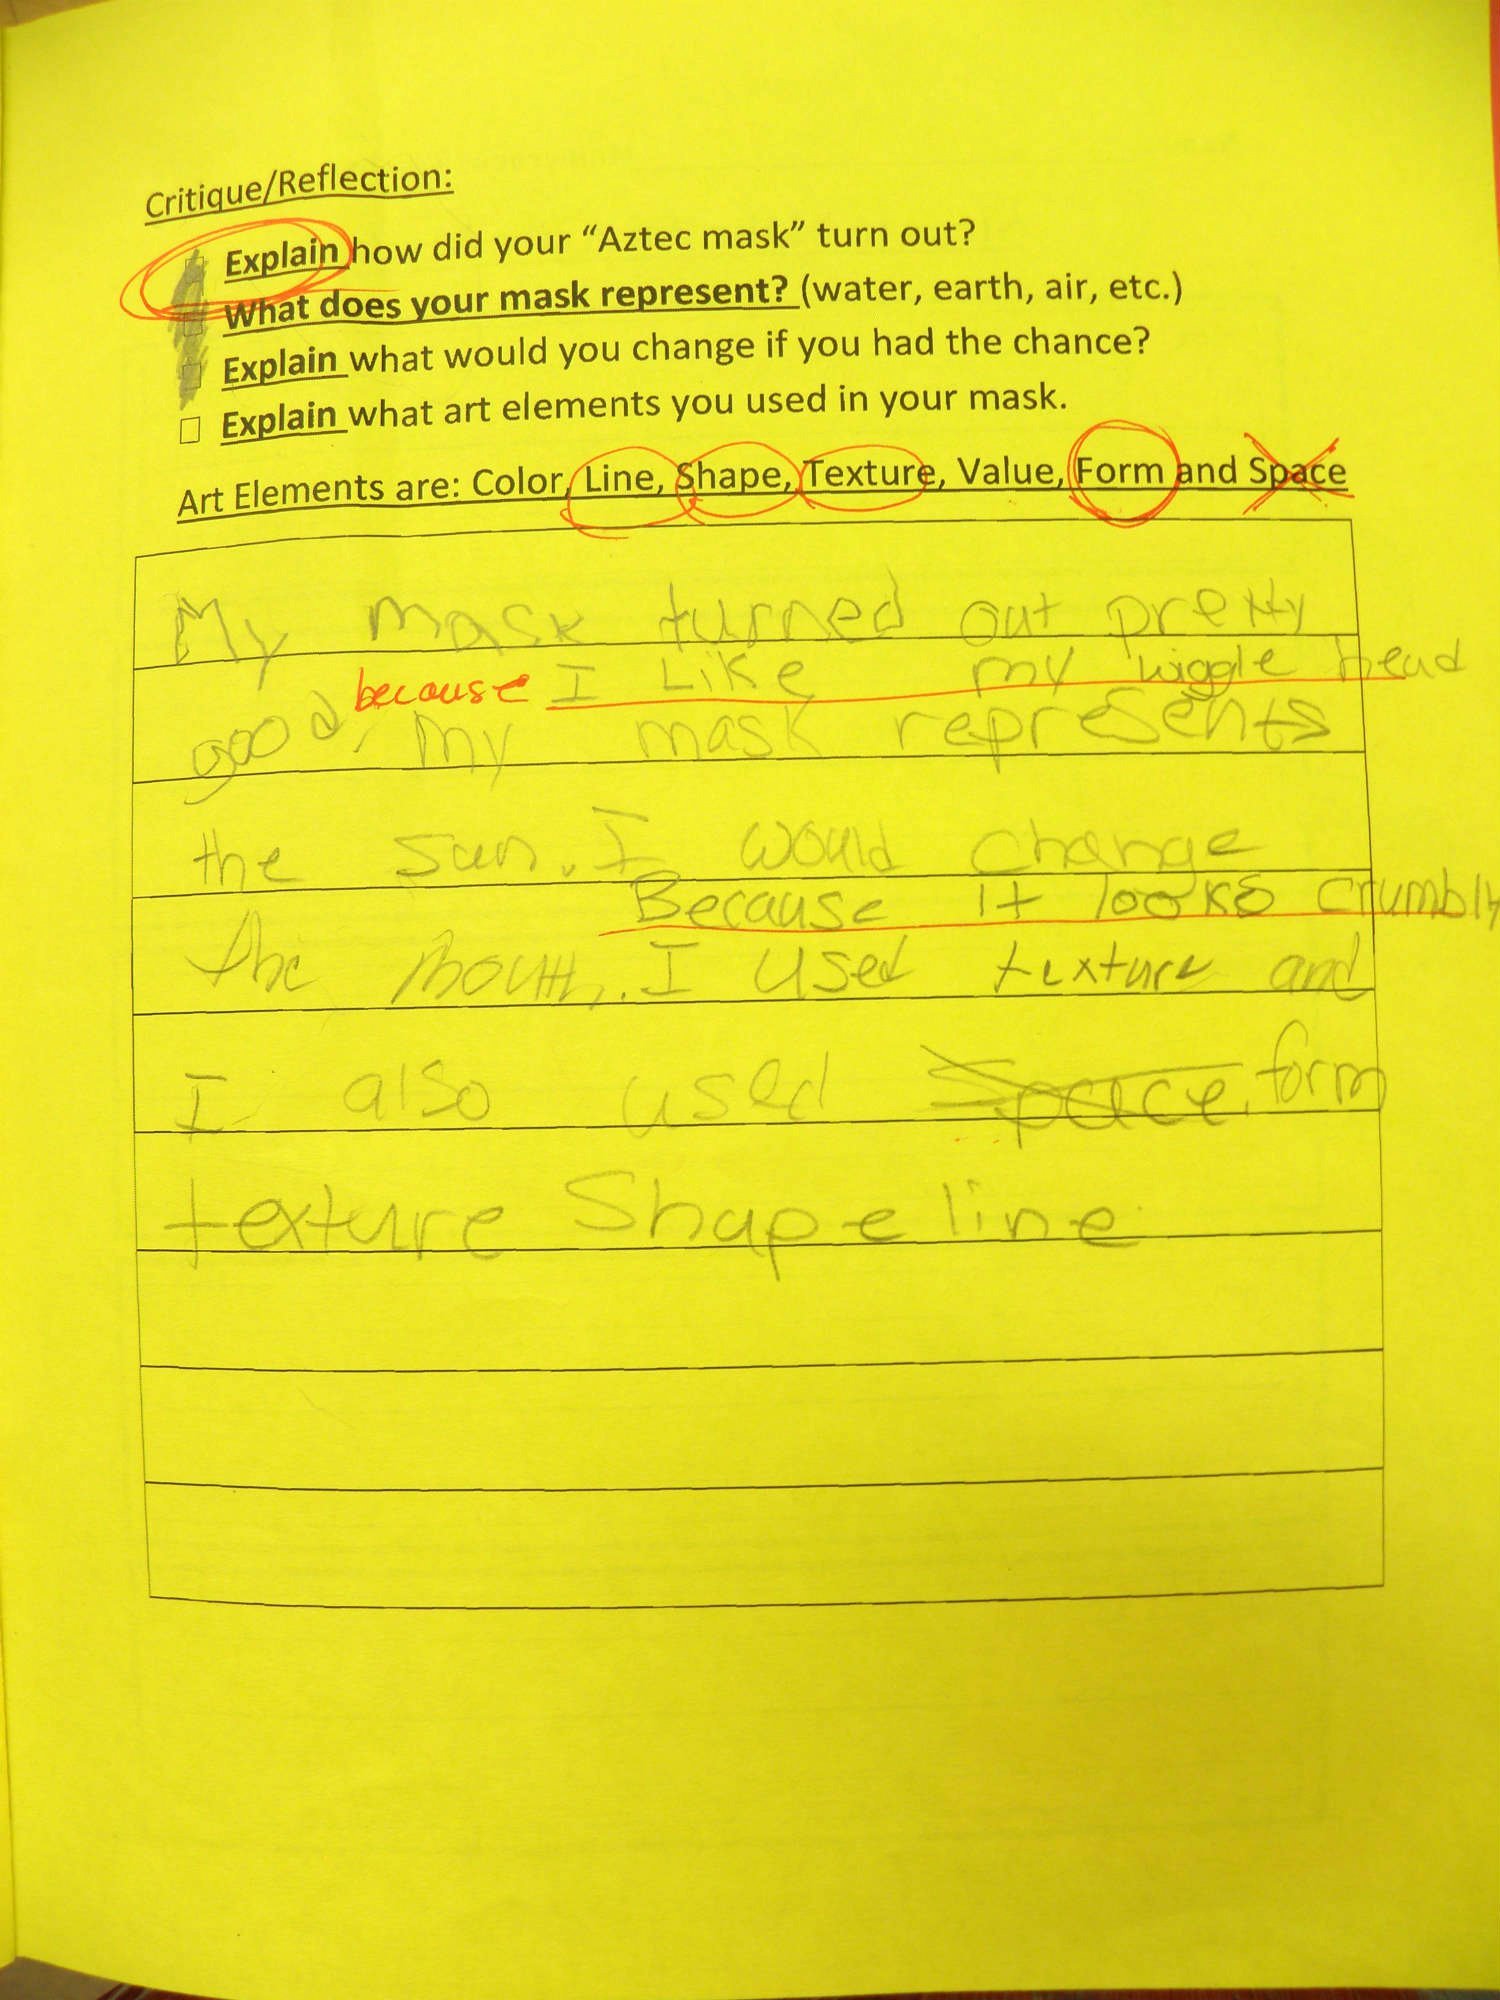 Critique/Reflection:
Explain how did your “Aztec mask” turn out?
What does your mask represent? (water, earth, air, etc.)
Explain what would you change if you had the chance?
Explain what art elements you used in your mask.
Art Elements are: Color, Line, Shape, Texture, Value, Form and Space
My mask turned out pretty
because I Like my wiggle head
good, My mask represents
the sun. I would change
Because it looks crumbly
the mouth. I used texture and
I also used Space. form
texture Shape line